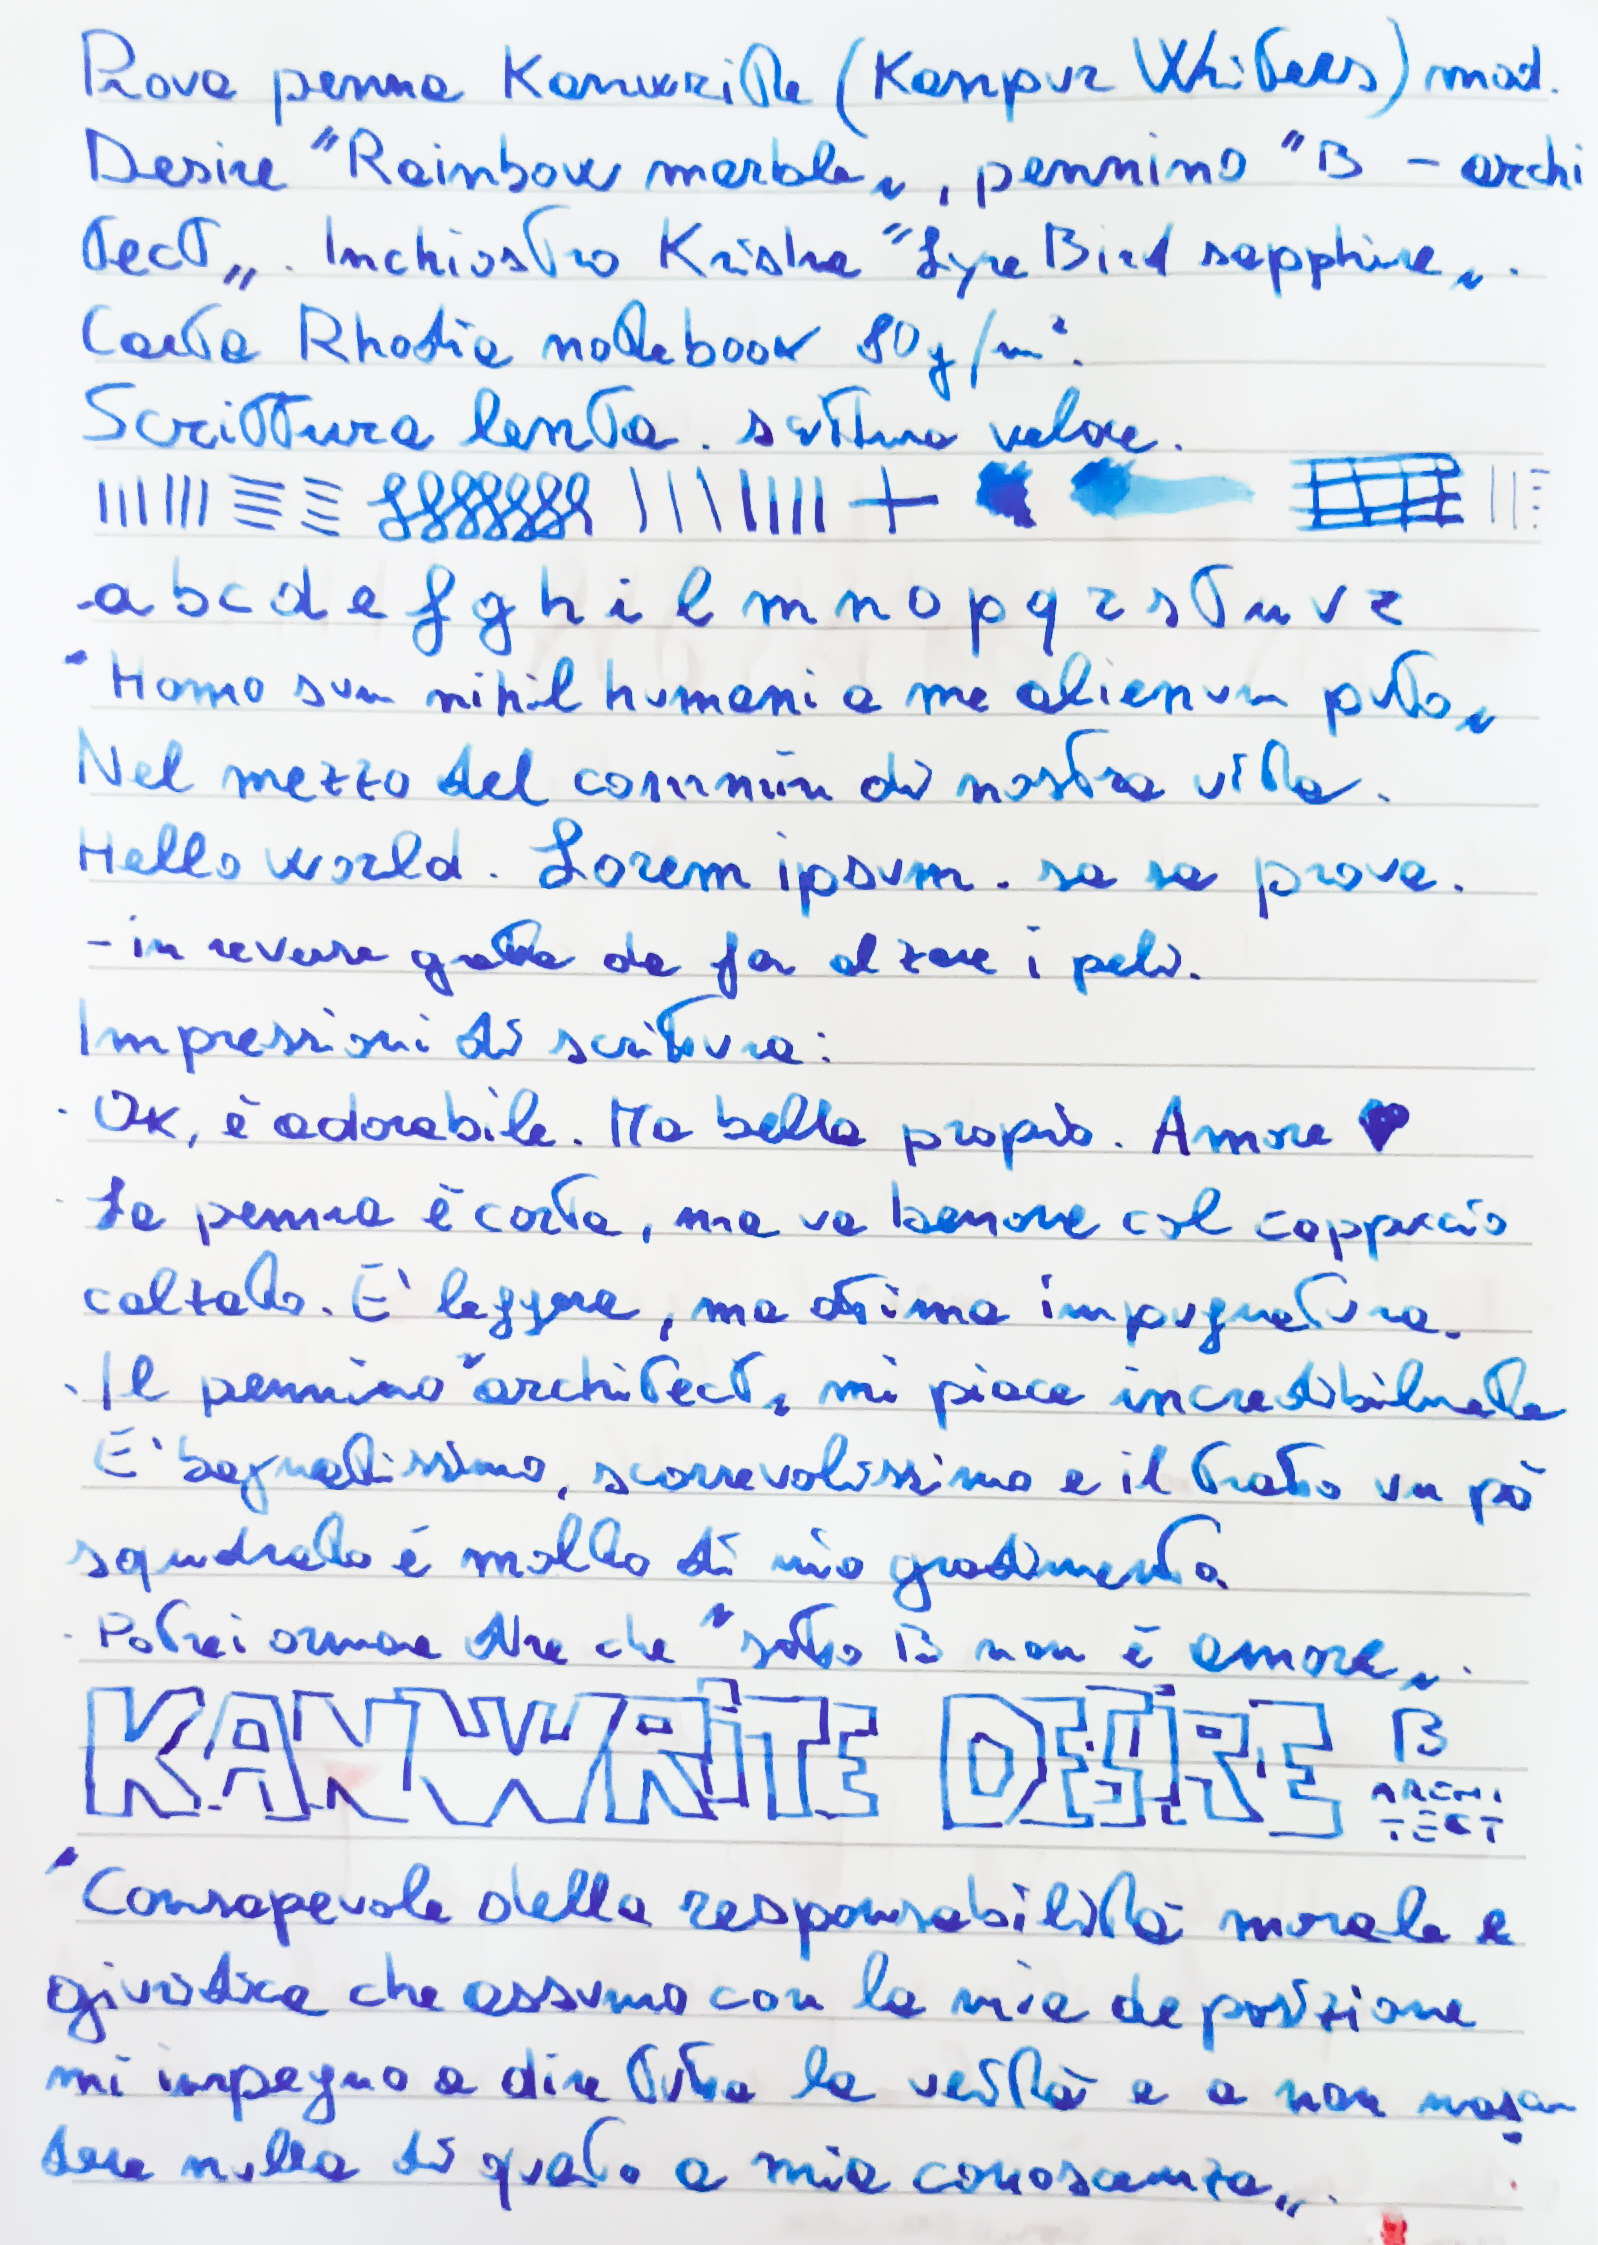 Prova penna Kanwrite (Kanpur Whiters) mod.
Desire "Rainbow marble", pennino "B - archi
tect". Inchiostro Krishna "Lyre Bird sapphire".
Carta Rhodia notebook 80 g/m².
Scrittura lenta. scrittura veloce.
a b c d e f g h i l m n o p q r s t u v z
"Homo sum nihil humani a me alienum puto"
Nel mezzo del cammin di nostra vita.
Hello world. Lorem ipsum. sa sa prova.
- in reverse gratta da far alzare i peli.
Impressioni di scrittura:
· Ok, è adorabile. Ma bella proprio. Amore ♥
· La penna è corta, ma va benone col cappuccio
calzato. E' leggera, ma ottima impugnatura.
· Il pennino "architect" mi piace incredibilmente
E' bagnatissimo, scorrevolissimo e il tratto un pò
squadrato è molto di mio gradimento
· Potrei ormai dire che "sotto B non è amore".
KANWRiTE DESiRE B
ARCHI
TECT
"Consapevole della responsabilità morale e
giuridica che assumo con la mia deposizione
mi impegno a dire tutta la verità e a non nascon
dere nulla di quanto a mia conoscenza".